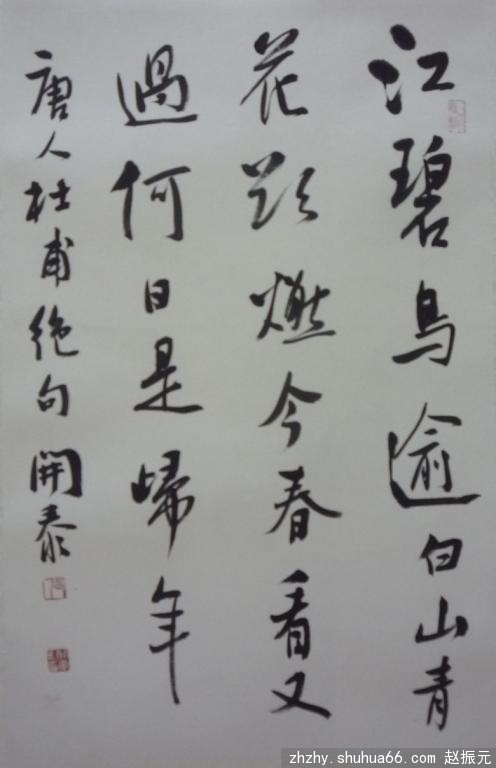 江碧鳥逾白山青
花欲燃今春看又
過何日是歸年
唐人杜甫絶句 開泰
zhzhy.shuhua66.com 赵振元